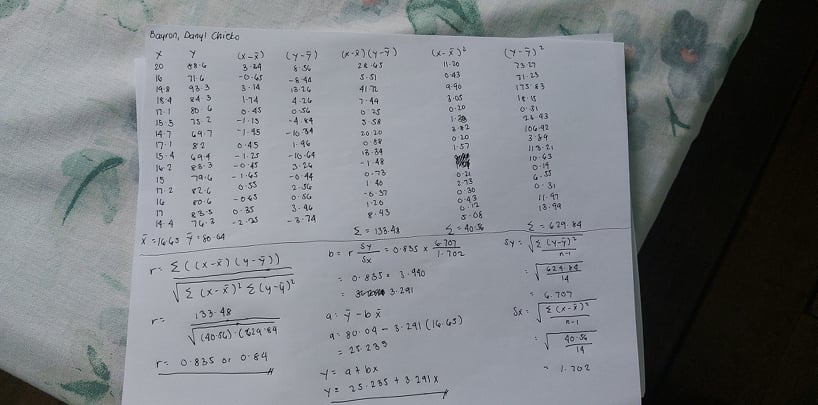 Bayron, Danyl Chicto
X Y (x-x̄) (y-ȳ) (x-x̄)(y-ȳ) (x-x̄)² (y-ȳ)²
20 88.6 8.56 28.65 11.20 73.27
16 71.6 -0.65 -8.44 5.51 0.43 71.23
19.8 93.3 3.14 13.26 41.72 9.90 175.83
18.4 84.3 1.74 4.26 7.49 3.05 18.15
17.1 80.6 0.45 0.56 0.25 0.20 0.31
15.5 75.2 -1.15 -4.84 5.58 23.43
14.7 69.7 -1.95 -10.34 20.20 3.82 106.92
17.1 82 0.45 1.96 0.88 0.20 3.84
15.4 69.4 -1.25 -10.64 13.34 1.57 113.21
16.2 83.3 -0.45 3.26 -1.48 10.63
15 79.6 -1.65 -0.44 0.73 0.21 0.19
17.2 82.6 0.55 2.56 1.40 2.73 6.55
16 80.6 -0.65 0.56 -0.37 0.30 0.31
17 83.5 0.35 3.46 1.20 0.43 11.97
14.4 76.3 -2.25 -3.74 8.43 0.12 13.99
5.08
x̄ = 16.65 ȳ = 80.04 Σ = 133.48 Σ = 40.56 Σ = 629.84
r = Σ((x-x̄)(y-ȳ))
√Σ(x-x̄)² Σ(y-ȳ)²
r = 133.48
√(40.56)·(629.84
r = 0.835 or 0.84
b = r Sy/Sx = 0.835 × 6.707/1.702
= 0.835 × 3.940
= 3.291
a = ȳ - bx̄
a = 80.04 - 3.291(16.65)
= 25.235
y = a + bx
y = 25.235 + 3.291x
Sy = √Σ(y-ȳ)²/n-1
= √629.84/14
= 6.707
Sx = √Σ(x-x̄)²/n-1
= √40.56/14
= 1.702